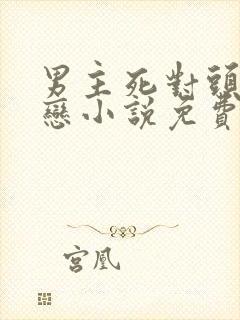 男主死對頭
戀小說免費
宮凰